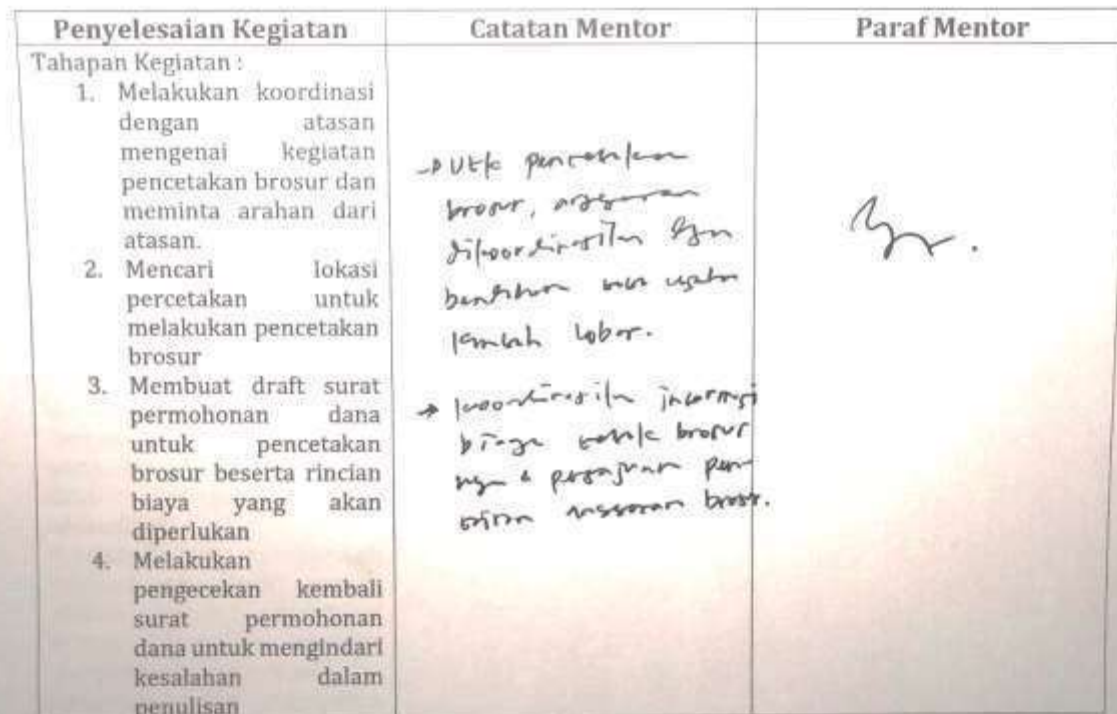 Penyelesaian Kegiatan
Catatan Mentor
Paraf Mentor
Tahapan Kegiatan :
1. Melakukan koordinasi
dengan atasan
mengenai kegiatan
pencetakan brosur dan
meminta arahan dari
atasan.
2. Mencari lokasi
percetakan untuk
melakukan pencetakan
brosur
3. Membuat draft surat
permohonan dana
untuk pencetakan
brosur beserta rincian
biaya yang akan
diperlukan
4. Melakukan
pengecekan kembali
surat permohonan
dana untuk mengindari
kesalahan dalam
penulisan
→ Utk pencetakan
brosur, anggaran
dikoordinasikan dgn
→ koordinasikan informasi
biaya cetak brosur
brosur.